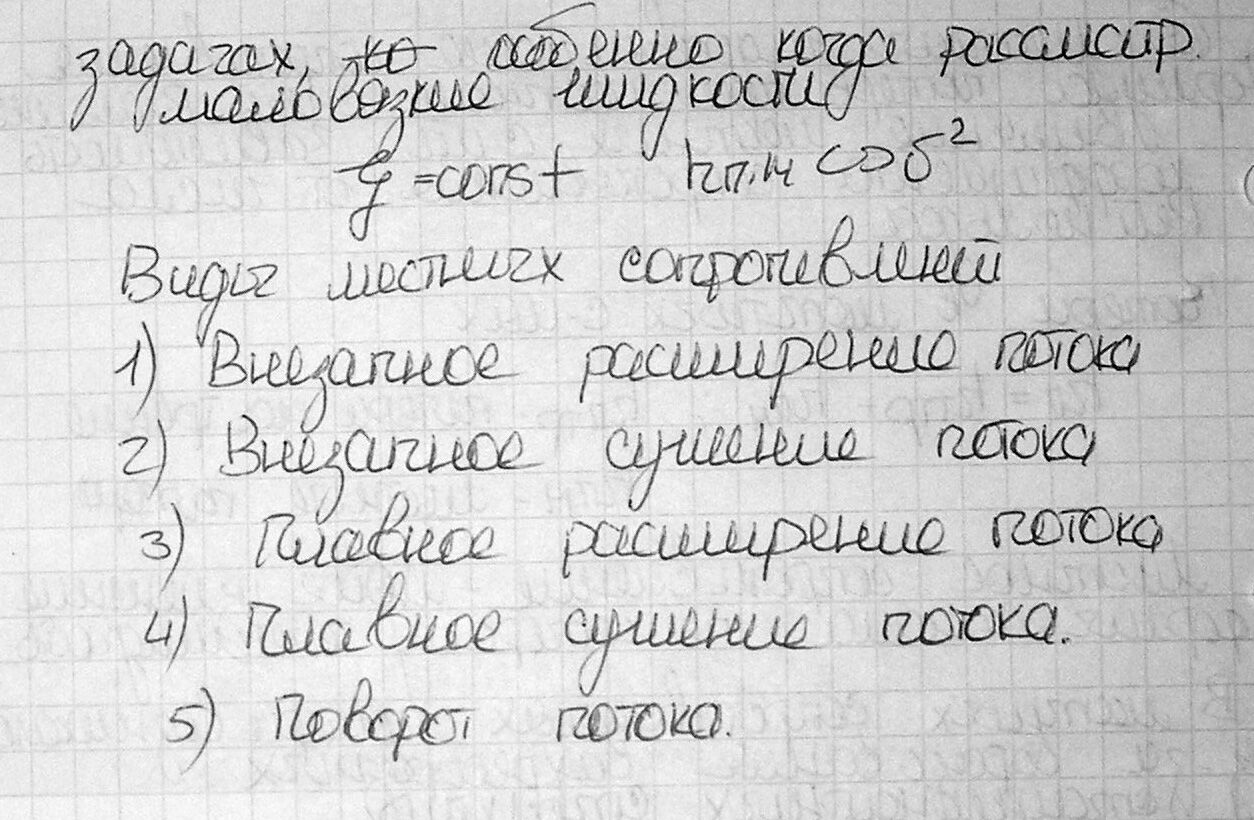 задачах, особенно когда рассмотр.
маловязкие жидкости
ξ = const hп.м ∞ υ²
Виды местных сопротивлений
1) Внезапное расширение потока
2) Внезапное сужение потока
3) Плавное расширение потока
4) Плавное сужение потока.
5) Поворот потока.